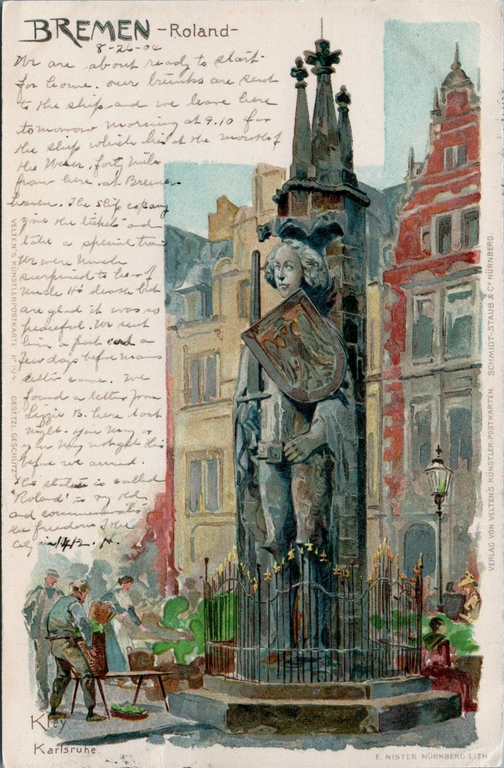 BREMEN -Roland-
8-26-04
We are about ready to start
for home. our trunks are sent
to the ship and we leave here
tomorrow morning at 9.10 for
the ship which lies at the mouth of
the Weser, forty miles
from here at Breme-
haven. The ship company
give the tickets and
take a special train
We were much
surprised to hear of
Uncle H's death but
are glad it was so
peaceful. We sent
him a postcard a
few days before mama's
letter came. We
found a letter from
Lizzie B. here last
night. you may or
you may not get this
before we arrive.
This statue is called
"Roland" is very old
and commemorates
the freedom of the
city in 1412. H.
VELTEN'S KÜNSTLERPOSTKARTE No 194. GESETZL. GESCHÜTZT
VERLAG VON VELTEN'S KÜNSTLER-POSTKARTEN, SCHMIDT-STAUB & Co NÜRNBERG.
Kley
Karlsruhe.
E. NISTER NÜRNBERG LITH.